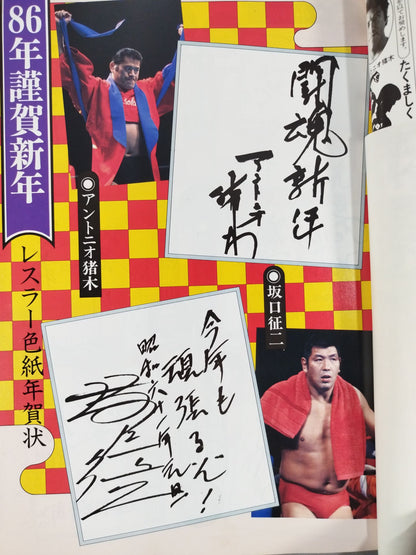 86年謹賀新年
レスラー色紙年賀状
闘魂新年
アントニオ
猪木
アントニオ猪木
坂口征二
今年も
頑張るぞ!
昭和六十一年元旦
たくましく